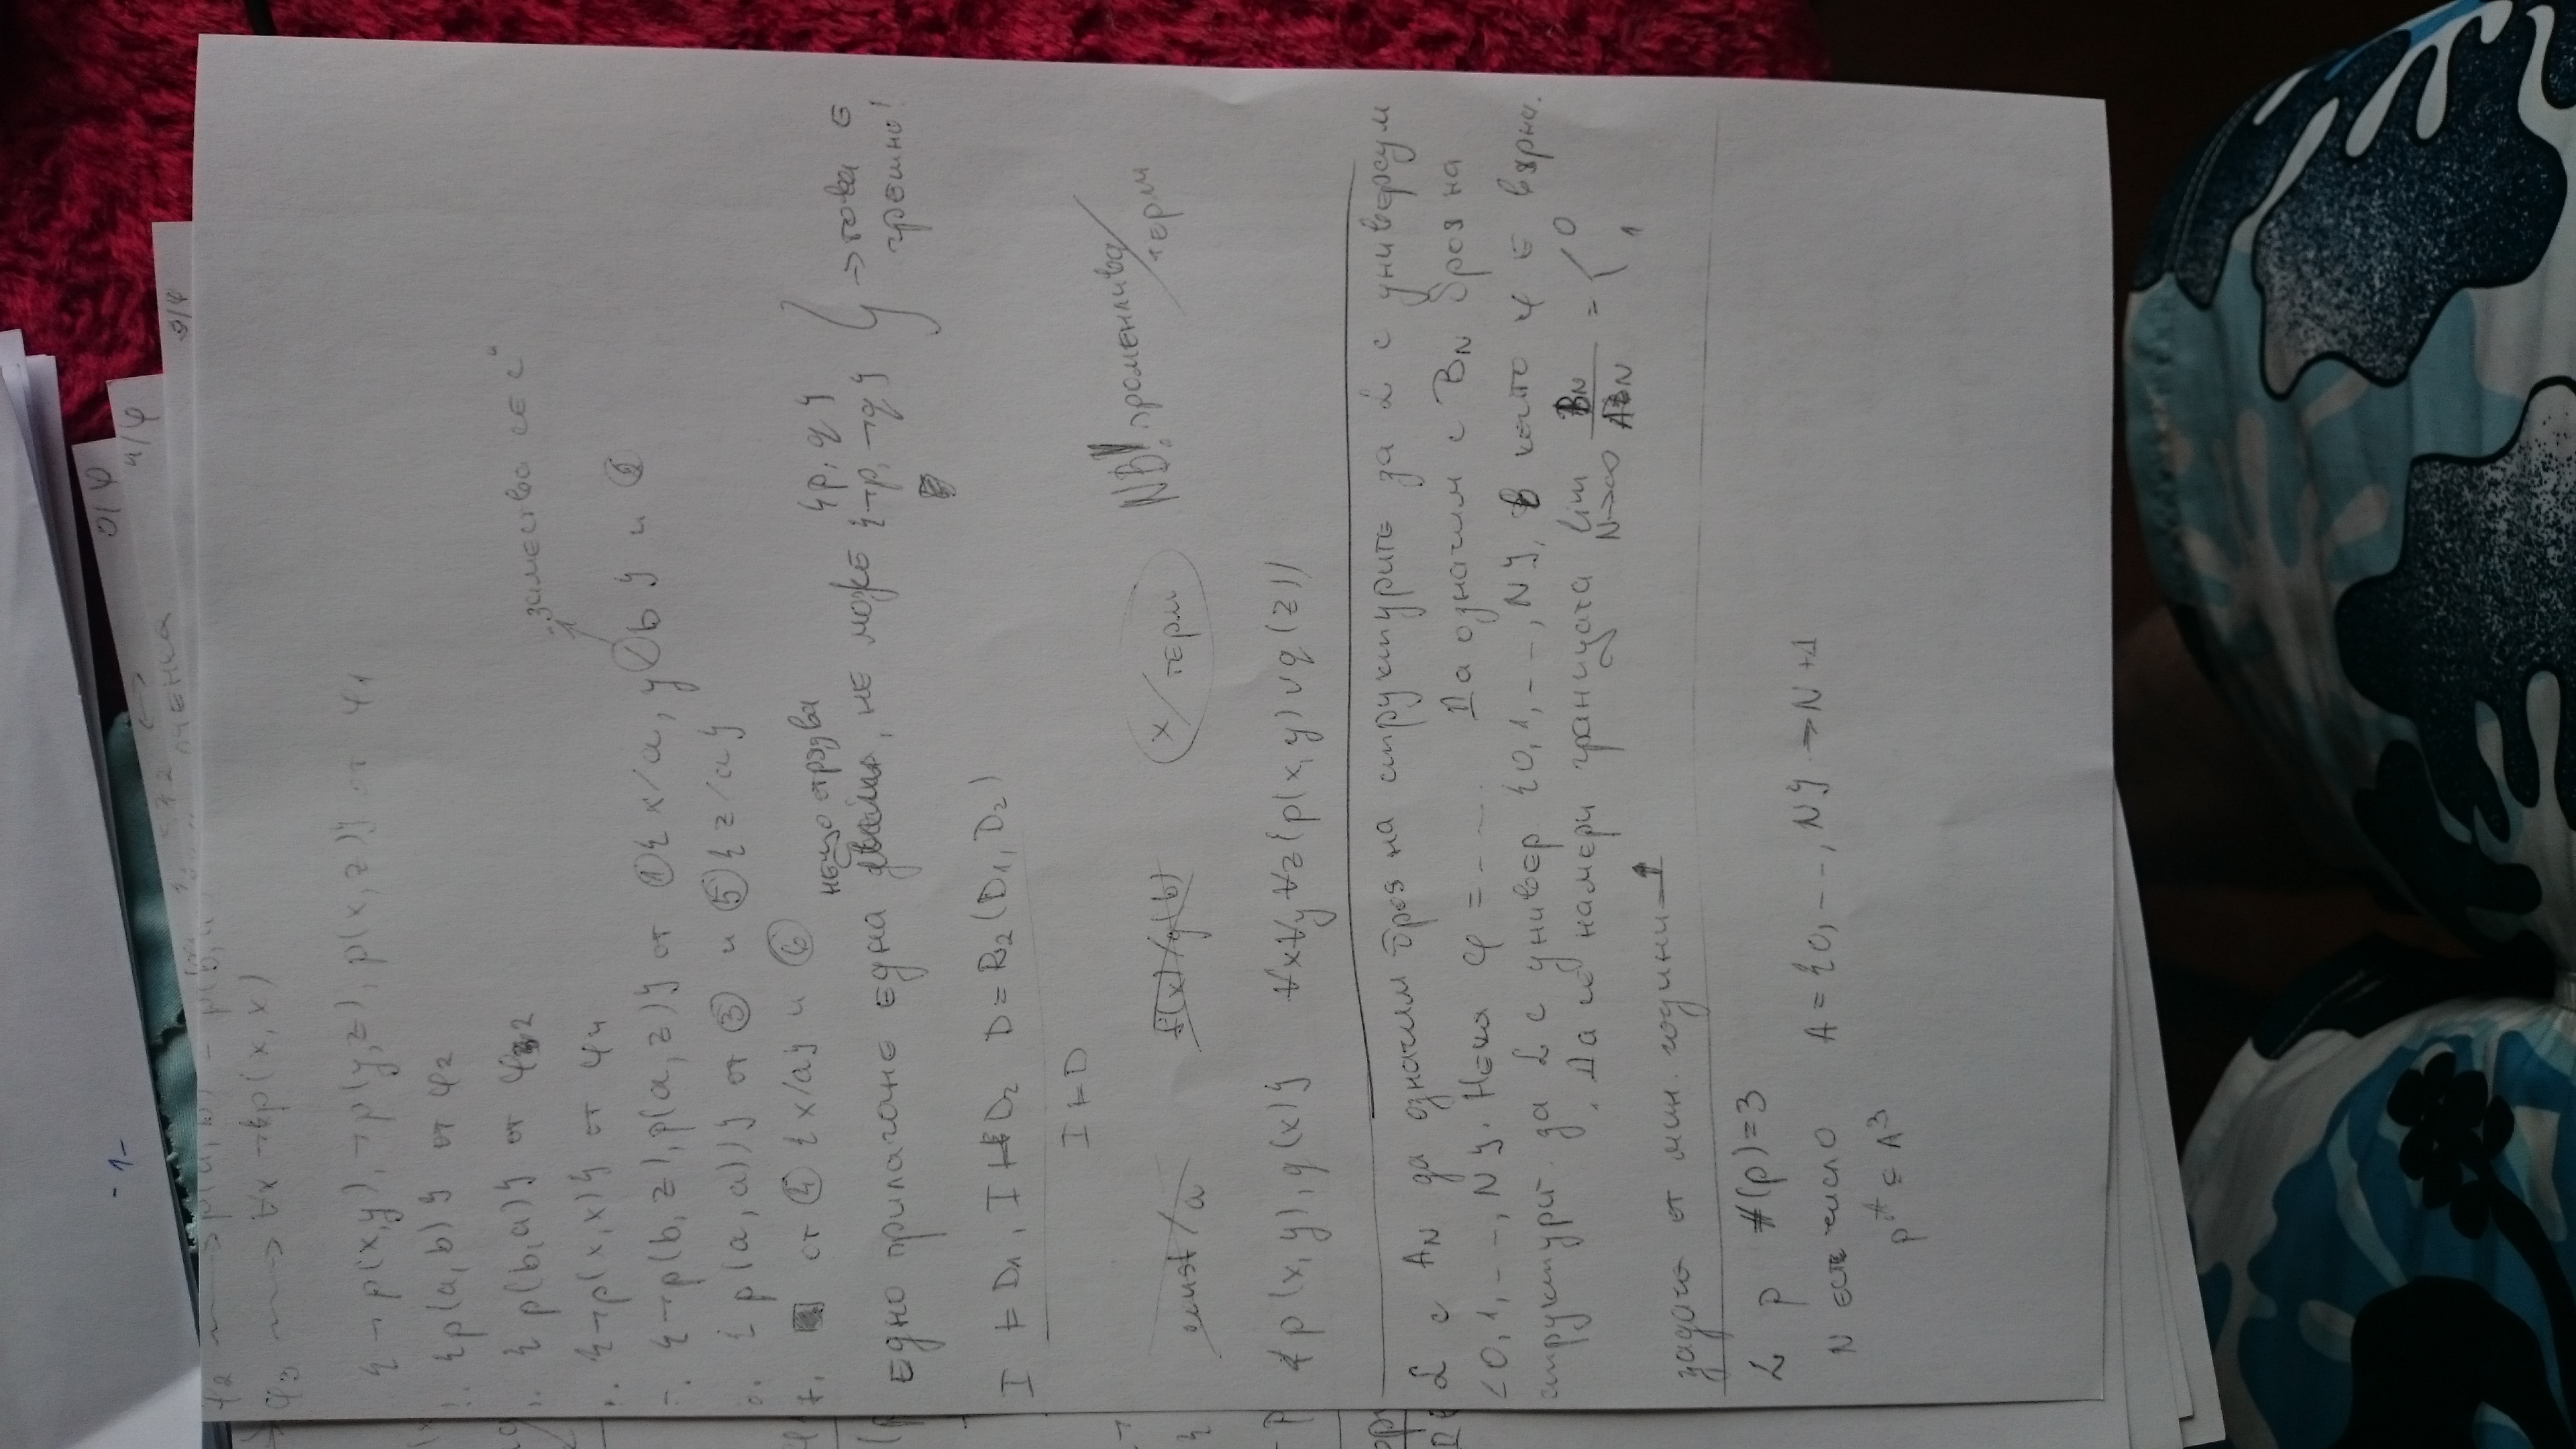 ψ₃ ⟿ ∀x ¬p(x,x)
{¬p(x,y), ¬p(y,z), p(x,z)} от ψ₁
{p(a,b)} от ψ₂
{p(b,a)} от ψ₂
{¬p(x,x)} от ψ₄
„замества се с“
{¬p(b,z), p(a,z)} от ① {x/a, y/b} и ②
{p(a,a)} от ③ и ⑤ {z/a}
■ от ④ {x/a} и ⑥
нещо отрязва
Едно прилагане една двойка, не може {p, q}
{¬p, ¬q} } → това е грешно!
I ⊨ D₁, I ⊨ D₂ D = R₂(D₁, D₂)
I ⊨ D
const/a f(x)/g(b) x/терм NB! променлива/терм
{p(x,y), q(x)} ∀x∀y∀z(p(x,y)∨q(z))
ℒ с A_N да означим броя на структурите за ℒ с универсум
{0,1,--,N}. Нека φ = -- --. Да означим с B_N броя на
структурит. за ℒ с универ {0,1,--,N}, в които φ е вярна.
. Да се намери границата lim N→∞ B_N/A_N = 0 1
задача от мин. години
ℒ p #(p)=3
N ест число A = {0,--,N} → N+1
p^A ⊆ A³
- 1-